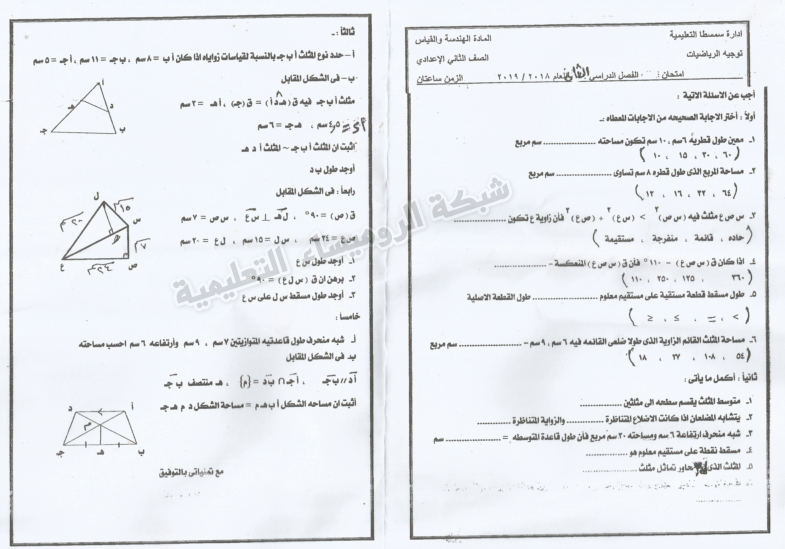 أدارة سمسطا التعليمية
المادة الهندسة والقياس
توجيه الرياضيات
الصف الثاني الإعدادي
امتحان : الفصل الدراسي الثاني للعام ٢٠١٨ / ٢٠١٩ الزمن ساعتان
أجب عن الاسئلة الاتية :
أولاً : أختر الاجابة الصحيحه من الاجابات المعطاه .
١ـ معين طول قطريه ٦سم ، ١٠ سم تكون مساحته .................. سم مربع
( ٦٠ ، ٣٠ ، ١٥ ، ١٠ )
٢ـ مساحة المربع الذى طول قطره ٨ سم تساوى .................. سم مربع
( ٦٤ ، ٣٢ ، ١٦ ، ١٢ )
س ص ع مثلث فيه (س ص)² > (س ع)² + (ص ع)² فأن زاوية ع تكون ..................
( حاده ، قائمة ، منفرجة ، مستقيمة )
٤ـ اذا كان ق ( س ص ع ) = ١١٠° فأن ق ( س ص ع ) المنعكسة = ..................
( ٣٦٠ ، ١٢٥ ، ٢٥٠ ، ١١٠ )
٥ـ طول مسقط قطعة مستقية على مستقيم معلوم .................. طول القطعة الاصلية
( < ، = ، ≥ ، ≤ )
٦ـ مساحة المثلث القائم الزاوية الذى طولا ضلعى القائمه فيه ٦ سم ، ٩ سم = .................. سم مربع
( ٥٤ ، ١٠٨ ، ٢٧ ، ١٨ )
ثانياً : أكمل ما يأتى :
١ـ متوسط المثلث يقسم سطحه الى مثلثين ..................
٢ـ يتشابه المضلعان اذا كانت الاضلاع المتناظرة .................. والزواية المتناظرة ..................
٣ـ شبه منحرف ارتفاعة ٦ سم ومساحته ٣٠ سم مربع فأن طول قاعدة المتوسطه = .................. سم
٤ـ مسقط نقطة على مستقيم معلوم هو ..................
٥ـ المثلث الذى محاور تماثل مثلث ..................
ثالثاً : ـ
أ- حدد نوع المثلث أ ب جـ بالنسبة لقياسات زواياه اذا كان أ ب = ٨ سم ، ب جـ = ١١ سم ، أ جـ = ٥ سم
ب- فى الشكل المقابل
مثلث أ ب جـ فيه ق ( هـ د أ ) = ق ( جـ ) ، أ هـ = ٣ سم
٤٫٥ سم ، هـ جـ = ٦ سم
اثبت ان المثلث أ ب جـ ~ المثلث أ د هـ
أوجد طول ب د
أ
د
هـ
ب
جـ
رابعاً : فى الشكل المقابل
ق ( ص ) = ٩٠° ، ل هـ ⊥ س ع ، س ص = ٧ سم
ص ع = ٢٤ سم ، س ل = ١٥ سم ، ل ع = ٢٠ سم
١ـ أوجد طول س ع
٢ـ برهن ان ق ( س ل ع ) = ٩٠°
٣ـ أوجد طول مسقط س ل على س ع
ل
١٥
٢٠
س
هـ
٧
ص
٢٤
ع
خامسا :
أـ شبه منحرف طول قاعدتيه المتوازيتين ٧ سم ، ٩ سم وأرتفاعه ٦ سم احسب مساحته
بـ فى الشكل المقابل
أ د // ب جـ ، أ جـ ∩ ب د = { م } ، هـ منتصف ب جـ
أثبت ان مساحه الشكل أ ب هـ م = مساحة الشكل د م هـ جـ
د
أ
م
جـ
هـ
ب
مع تمنياتى بالتوفيق
شبكة الروميساء التعليمية